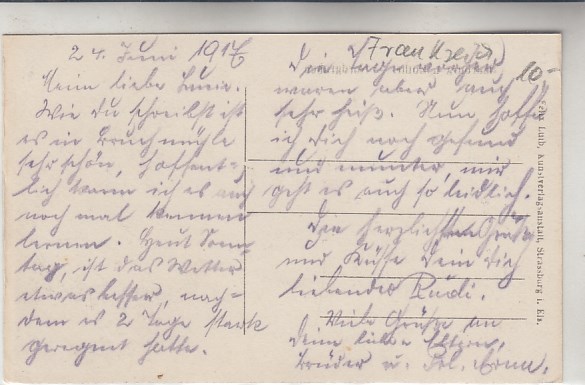 24. Juni 1917
Mein liebe
Wie du schreibst ist
es in Bruchmühle
sehr schön, hoffent-
lich kann ich es auch
noch mal kennen
lernen. Heut Sonn-
tag, ist das Wetter
etwas besser, nach-
dem es 2 Tage stark
geregnet hatte.
Die Tage vorher
waren aber auch
sehr heiß. Nun hoffe
ich dich noch gesund
und munter, mir
geht es auch so leidlich.
Den herzlichsten Gruß
und Küsse Dein Dich
liebender Rudi.
Viele Grüße an
deine lieben Eltern,
Brüder u.
Frankreich
10-
Luib, Kunstverlagsanstalt, Strassburg i. Els.